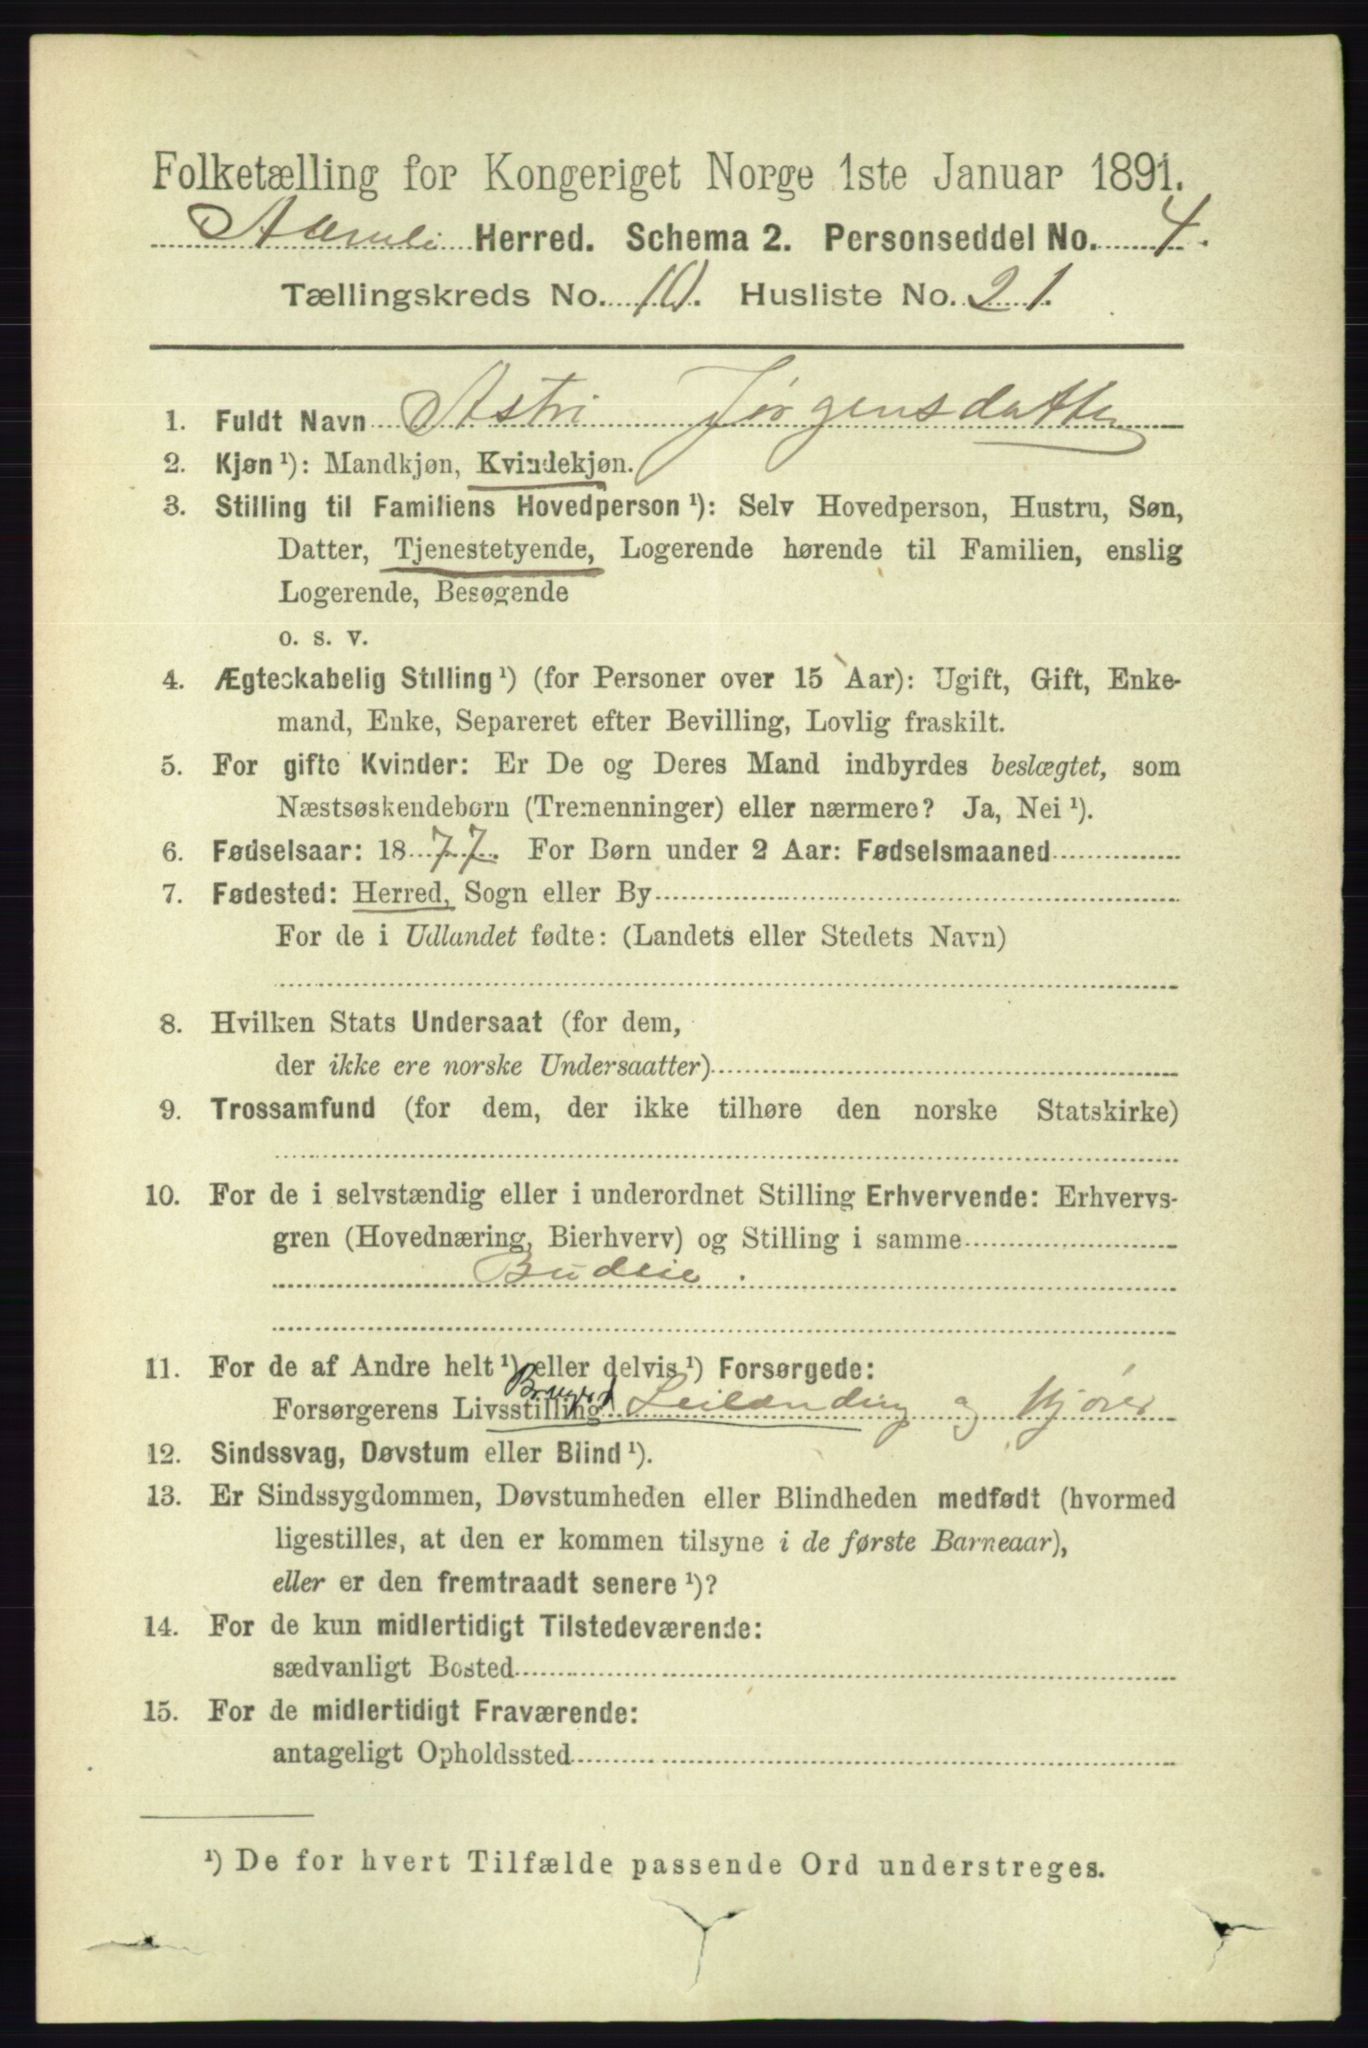 Folketælling for Kongeriget Norge 1ste Januar 1891.
Aamli Herred. Schema 2. Personseddel No. 4.
Tællingskreds No. 10. Husliste No. 21.
1. Fuldt Navn Astri Jørgensdatter
2. Kjøn ¹): Mandkjøn, Kvindekjøn.
3. Stilling til Familiens Hovedperson ¹): Selv Hovedperson, Hustru, Søn,
Datter, Tjenestetyende, Logerende hørende til Familien, enslig
Logerende, Besøgende
o. s. v.
4. Ægteskabelig Stilling ¹) (for Personer over 15 Aar): Ugift, Gift, Enke-
mand, Enke, Separeret efter Bevilling, Lovlig fraskilt.
5. For gifte Kvinder: Er De og Deres Mand indbyrdes beslægtet, som
Næstsøskendeborn (Tremenninger) eller nærmere? Ja, Nei ¹).
6. Fødselsaar: 1877. For Børn under 2 Aar: Fødselsmaaned
7. Fødested: Herred, Sogn eller By
For de i Udlandet fødte: (Landets eller Stedets Navn)
8. Hvilken Stats Undersaat (for dem,
der ikke ere norske Undersaatter)
9. Trossamfund (for dem, der ikke tilhøre den norske Statskirke)
10. For de i selvstændig eller i underordnet Stilling Erhvervende: Erhvervs-
gren (Hovednæring, Bierhverv) og Stilling i samme
Budeie.
11. For de af Andre helt ¹) eller delvis ¹) Forsørgede:
Forsørgerens Livsstilling Leilænding og
12. Sindssvag, Døvstum eller Blind ¹).
13. Er Sindssygdommen, Døvstumheden eller Blindheden medfødt (hvormed
ligestilles, at den er kommen tilsyne i de første Barneaar),
eller er den fremtraadt senere ¹)?
14. For de kun midlertidigt Tilstedeværende:
sædvanligt Bosted
15. For de midlertidigt Fraværende:
antageligt Opholdssted
¹) De for hvert Tilfælde passende Ord understreges.